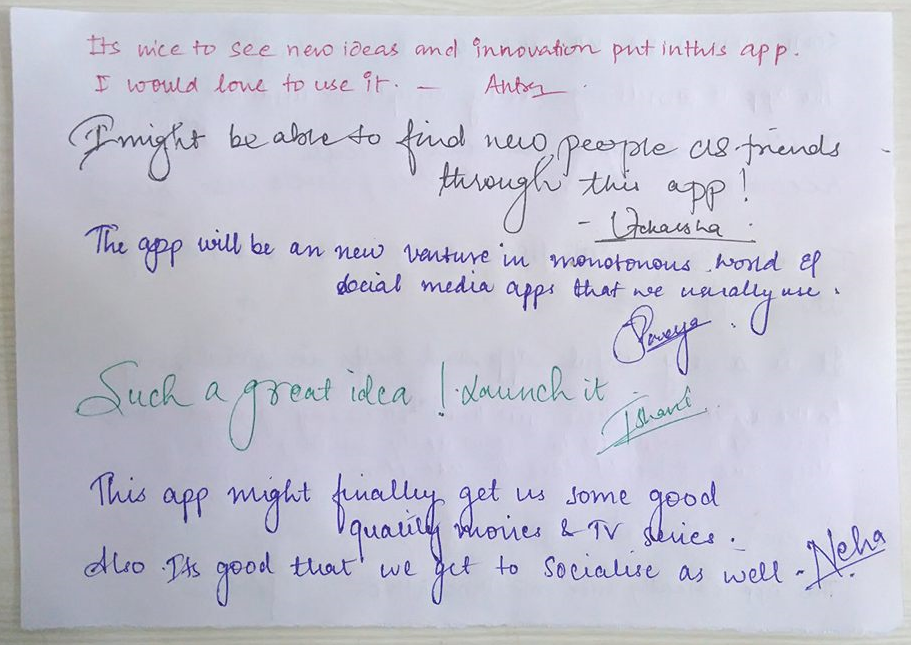 Its nice to see new ideas and innovation put in this app.
I would love to use it. —
I might be able to find new people as friends
through this app!
- Utkarsha
The app will be an new venture in monotonous world of
social media apps that we usually use.
Such a great idea! Launch it
Ishani
This app might finally get us some good
quality movies & TV series.
Also Its good that we get to socialise as well - Neha